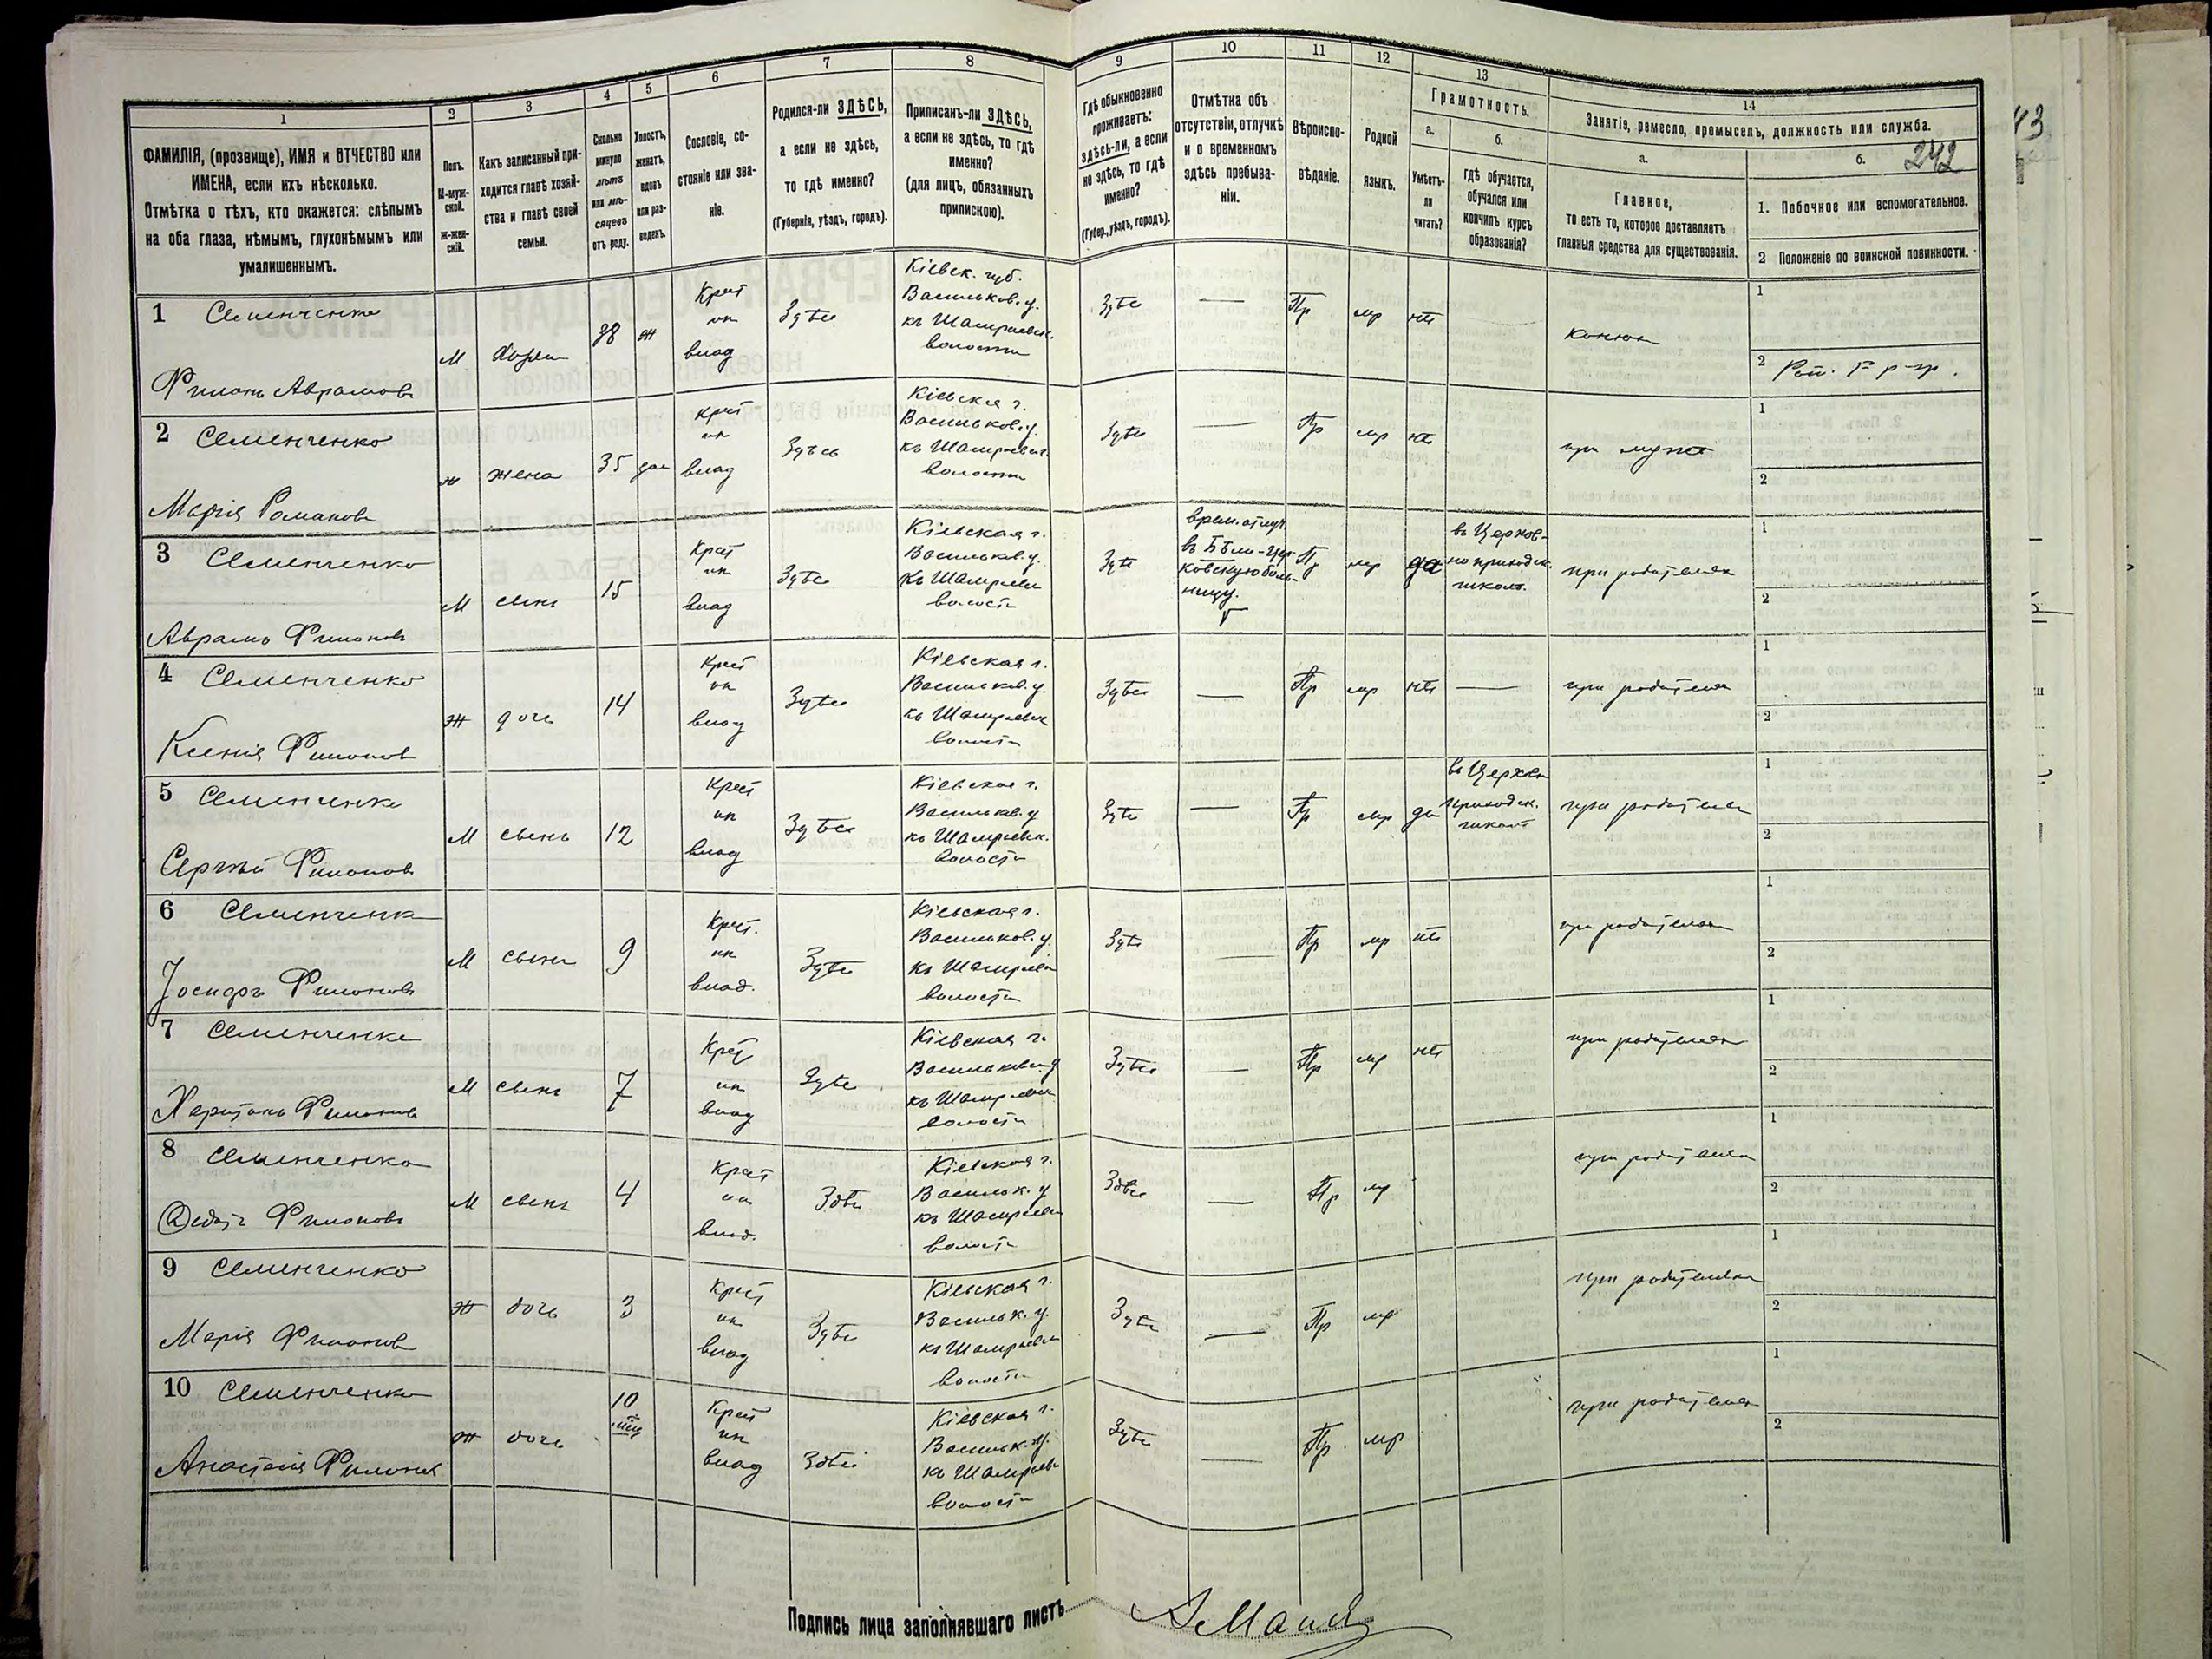 1
2
3
4
5
6
7
8
9
10
11
12
13
14
ФАМИЛІЯ, (прозвище), ИМЯ и ОТЧЕСТВО или
ИМЕНА, если ихъ нѣсколько.
Отмѣтка о тѣхъ, кто окажется: слѣпымъ
на оба глаза, нѣмымъ, глухонѣмымъ или
умалишеннымъ.
Полъ.
М-муж-
ской.
ж-жен-
скій.
Какъ записанный при-
ходится главѣ хозяй-
ства и главѣ своей
семьи.
Сколько
минуло
лѣтъ
или мѣ-
сяцевъ
отъ роду.
Холостъ,
женатъ,
вдовъ
или раз-
веденъ.
Сословіе, со-
стояніе или зва-
ніе.
Родился-ли ЗДѢСЬ,
а если не здѣсь,
то гдѣ именно?
(Губернія, уѣздъ, городъ).
Приписанъ-ли ЗДѢСЬ,
а если не здѣсь, то гдѣ
именно?
(для лицъ, обязанныхъ
припискою).
Гдѣ обыкновенно
проживаетъ:
здѣсь-ли, а если
не здѣсь, то гдѣ
именно?
(Губер., уѣздъ, городъ).
Отмѣтка объ
отсутствіи, отлучкѣ
и о временномъ
здѣсь пребыва-
ніи.
Вѣроиспо-
вѣданіе.
Родной
языкъ.
Грамотность.
а.
Умѣетъ-
ли
читать?
б.
гдѣ обучается,
обучался или
кончилъ курсъ
образованія?
Занятіе, ремесло, промыселъ, должность или служба.
а.
Главное,
то есть то, которое доставляетъ
главныя средства для существованія.
б.
242
1. Побочное или вспомогательное.
2 Положеніе по воинской повинности.
43
1 Семенченко
Филонъ Аврамовъ
М
38
ж
Крест
ик
влад
Здѣсь
Кіевск. губ.
Васильков. у.
къ Шамраевск.
волости
Здѣсь
—
Пр
мр
нѣт
1
2
2 Семенченко
Марія Романова
ж
жена
35
Крест
ик
влад
Здѣсь
Кіевская г.
Васильков. у.
къ Шамраевск.
волости
Здѣсь
—
Пр
мр
нѣт
при мужѣ
1
2
3 Семенченко
Аврамъ Филоновъ
М
сынъ
15
Крест
ик
влад
Здѣсь
Кіевская г.
Васильков. у.
къ Шамраевск
волости
Здѣсь
врем. отлуч.
въ Бѣло-Цер-
ковскую боль-
ницу.
Пр
мр
да
въ Церков-
но приходск.
школѣ.
при родителях
1
2
4 Семенченко
Ксенія Филонов
ж
дочь
14
Крест
ик
влад
Здѣсь
Кіевская г.
Васильков. у.
къ Шамраевск
волости
Здѣсь
—
Пр
мр
нѣт
—
при родителях
1
2
5 Семенченко
Сергѣй Филонов
М
сынъ
12
Крест
ик
влад
Здѣсь
Кіевская г.
Васильков. у
къ Шамраевск.
волости
Здѣсь
—
Пр
мр
да
въ Церков
приходск.
школѣ
при родителях
1
2
6 Семенченко
Іосифъ Филоновъ
М
сынъ
9
Крест.
ик
влад.
Здѣсь
Кіевская г.
Васильков. у.
къ Шамраев
волости
Здѣсь
—
Пр
мр
нѣт
при родителях
1
2
7 Семенченко
Харитонъ Филоновъ
М
сынъ
7
Крест
ик
влад
Здѣсь
Кіевская г.
Васильков. у
къ Шамраевск
волости
Здѣсь
—
Пр
мр
нѣт
при родителях
1
2
8 Семенченко
Федотъ Филоновъ
М
сынъ
4
Крест
ик
влад.
Здѣсь
Кіевская г.
Васильк. у
къ Шамраевск
волости
Здѣсь
—
Пр
мр
при родителях
1
2
9 Семенченко
Марія Филонов
ж
дочь
3
Крест
ик
влад
Здѣсь
Кіевская г.
Васильк. у.
къ Шамраевск
волости
Здѣсь
—
Пр
мр
при родителях
1
2
10 Семенченко
Анастасія Филонов
ж
дочь
10
мѣс
Крест
ик
влад
Здѣсь
Кіевская г.
Васильк. у.
къ Шамраевск
волости
Здѣсь
—
Пр
мр
при родителях
1
2
Подпись лица заполнявшаго листъ